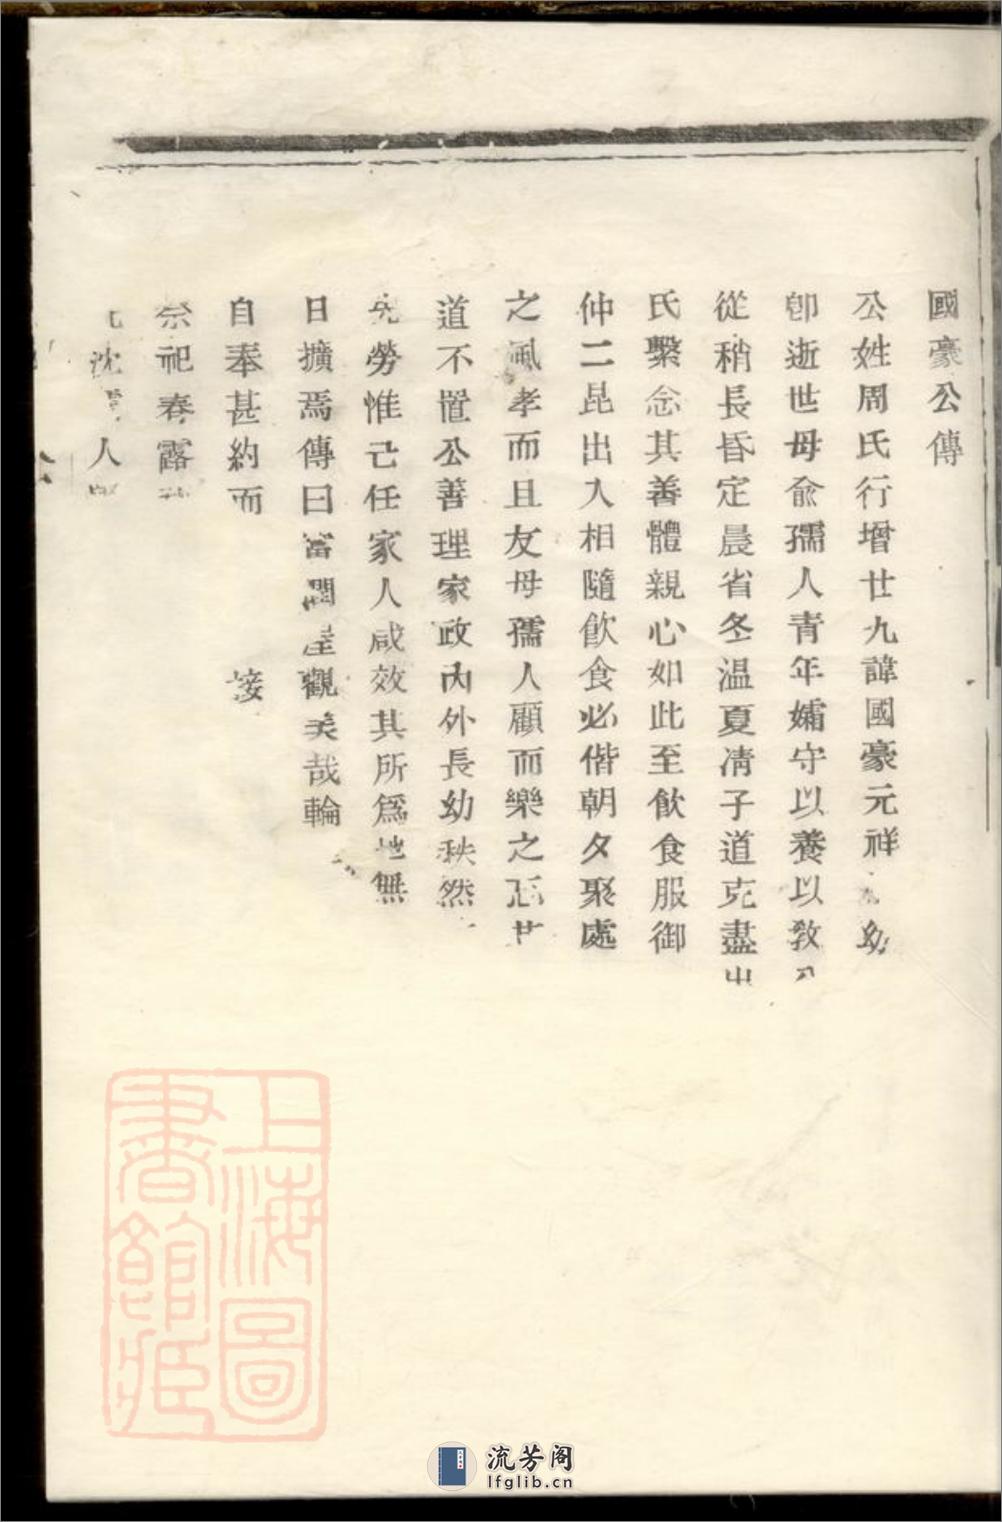 國豪公傳
公姓周氏行增廿九諱國豪元祥幼
卽逝世母俞孺人青年孀守以養以敎
從稍長昏定晨省冬温夏凊子道克盡出
氏繫念其善體親心如此至飮食服御
仲二昆出入相隨飮食必偕朝夕聚處
之風孝而且友母孺人顧而樂之
道不置公善理家政內外長幼秩然
先勞惟己任家人咸效其所爲地無
日擴焉傳曰富潤屋觀美哉輪
自奉甚約而 接
祭祀春露
沈 人
上海圖書館藏
流芳阁
lfglib.cn